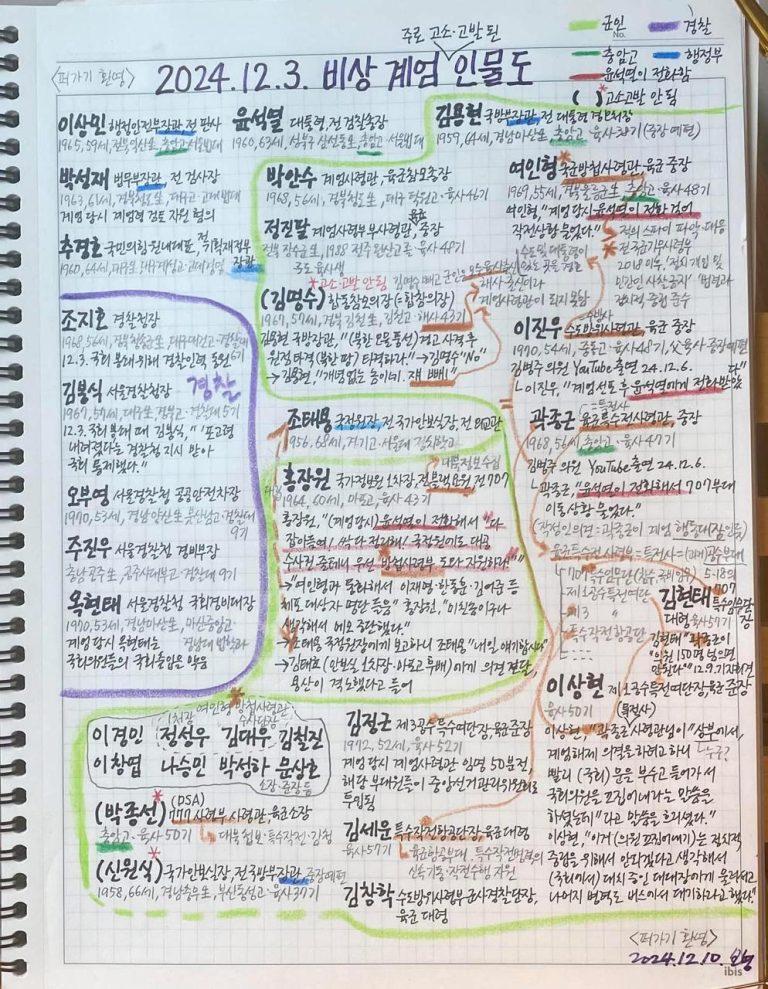 주로 고소·고발된
<퍼가기 환영>
2024.12.3. 비상 계엄 인물도
군인
No.
경찰
충암고
행정부
윤석열이 전화함
( ) 고소고발 안 됨
이상민 행정안전부장관, 전 판사
1965, 59세, 전북익산生, 충암고·서울법대
박성재 법무부장관, 전 검사장
1963, 61세, 경북청도生, 대구고·고대법대
계엄 당시 계엄령 검토 지원 혐의
추경호 국민의힘 원내대표, 전 기획재정부장관
1960, 64세, 대구生
윤석열 대통령, 전 검찰총장
1960, 63세, 성북구 삼선동生, 충암고·서울법대
김용현 국방부장관, 전 대통령 경호처장
1959, 64세, 경남마산生, 충암고·육사38기 (중장 예편)
박안수 계엄사령관, 육군참모총장
1968, 56세, 경북청도生, 대구 덕원고·육사46기
정진팔 계엄사령부부사령관, 중장
전북 장수군生, 1988 전주 완산고졸·육사48기
*고소·고발 안 됨
(김명수) 합동참모의장 (=합참의장)
1967, 57세, 경북 김천生, 김천고·해사43기
김용현 국방장관, "(북한 오물풍선) 경고사격 후
원점 타격(북한 땅) 타격하라." → 김명수 "No."
→ 김용현, "개념없는 놈이네. 쟤 빼!"
여인형* 국군방첩사령관, 육군 중장
1969, 55세, 경북울릉군生, 충암고·육사48기
여인형, "계엄 당시 윤석열이 전화걸어
작전상황 물었다."
→ 적의 스파이 파악·대응
→ 전 국군기무사령부
2018 이후, 정치개입 및
민간인 사찰금지
정치적 중립 준수
이진우 수도방위사령관, 육군 중장
1970, 54세, 중동고·육사48기, 父육사·중장예편
김병주 의원 YouTube 출연 24.12.6.
└이진우, "계엄선포 후 윤석열에게 전화받았다"
=특전사
곽종근 육군특수전사령관, 중장
1968, 56세, 충남고·육사47기
김병주 의원 YouTube 출연 24.12.6.
└곽종근, "윤석열이 전화해서 707부대
이동상황 물었다."
육군특수전사령부=특전사=(과거)공수부대
조지호 경찰청장
1968, 56세, 경북청송生, 대구대건고·경찰대6기
12.3. 국회 봉쇄 위해 경찰인력 동원
김봉식 서울경찰청장 경찰
1967, 57세, 대구生, 경북고·경찰대 5기
12.3. 국회 봉쇄 때 김봉식, "포고령
내려졌다는 경찰청 지시 받아
국회 통제했다."
오부명 서울경찰청 공공안전차장
1970, 53세, 경남 양산生, 부산남고·경찰대
9기
주진우 서울경찰청 경비부장
충남공주生, 공주사대부고·경찰대 9기
목현태 서울경찰청 국회경비대장
1970, 53세, 경남마산生, 마산중앙고·
계엄 당시 목현태는 경남대 법학과
국회의원들의 국회출입을 막음
조태용 국정원장, 전 국가안보실장, 전 외교관
1956, 68세, 경기고·서울대 정치학과
대북정보수집
홍장원 국가정보원 1차장, 전 블랙요원, 전 707
1964, 60세, 마포고, 육사43기
홍장원, "(계엄당시) 윤석열이 전화해서 "다
잡아들여! 싹 다 정리해! 국정원에도 대공
수사권 줄테니 우선 방첩사령부 도와 지원하라!""
→ "여인형과 통화해서 이재명·한동훈·김어준 등
체포 대상자 명단 들음" 홍장원, "미친놈이구나
생각해서 메모 중단했다."
→ 조태용 국정원장에게 보고하니 조태용 "내일 얘기합시다"
→ 김태효 (안보실 1차장·마포고 후배)에게 의견 전달,
용산이 격노했다고 들어
김현태 707 특수임무단장
대령 육사57기
김현태 "곽종근이
'의원 150명 넘으면
안된다'" 12.9 기자회견
이상현 제1공수특전여단장, 육군 준장
육사50기 (특전사)
이상현, "곽종근 사령관님이 "상부에서,
계엄해제 의결을 하려고 하니 └누구?
빨리 (국회) 문을 부수고 들어가서
국회의원을 끄집어내라는 말씀을
하셨는데"라고 말씀을 흐리셨다."
이상현, "이거 (의원 끄집어내기)는 정치적
중립을 위해서 안되겠다고 생각해서
(국회에서) 대치 중인 대대장에게 물러서고
나머지 병력도 버스에서 대기하라고 했다."
여인형 방첩사령관
이경민 정성우 김대우 김철진
이창엽 나승민 박성하 문상호
소장·준장 등
(박종선)* (DSA) 777사령부 사령관, 육군소장
충암고·육사 50기
└대북첩보·특수작전·감청
(신원식)* 국가안보실장, 전 국방부장관, 중장예편
1958, 66세, 경남통영生, 부산동성고·육사37기
김정근 제3공수특수여단장, 육군준장
1972, 52세, 육사52기
계엄 당시 계엄사령관 임명 50분전,
해당 부대원들이 중앙선거관리위원회로
투입됨
김세운 특수작전항공단장, 육군 대령
육사57기
└육군항공부대. 특수작전병력의
신속기동·작전수행 지원
김창학 수도방위사령부군사경찰단장,
육군 대령
<퍼가기 환영>
2024.12.10.
ibis